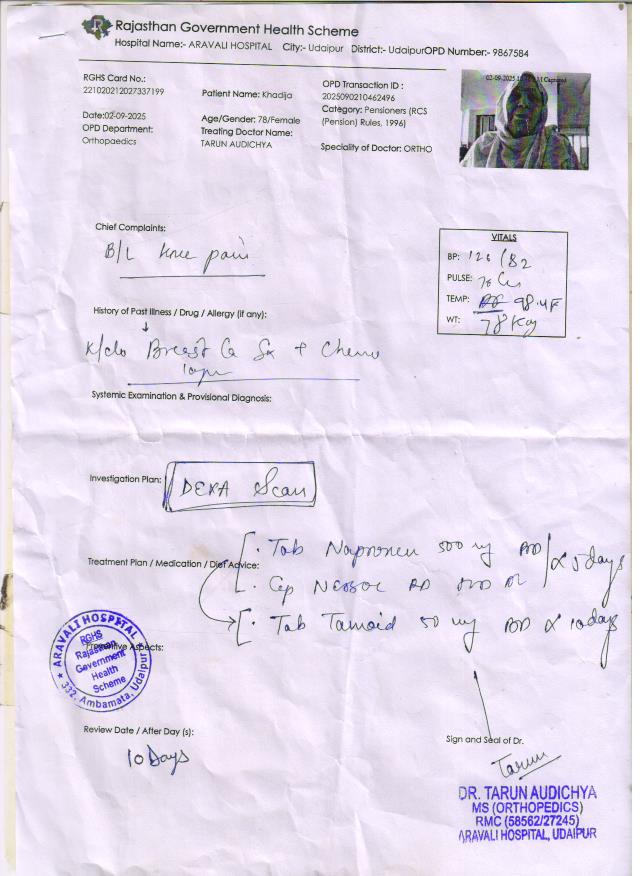 Rajasthan Government Health Scheme
Hospital Name:- ARAVALI HOSPITAL City:- Udaipur District:- UdaipurOPD Number:- 9867584
RGHS Card No.:
221020212027337199
Patient Name: Khadija
OPD Transaction ID :
2025090210462496
Category: Pensioners (RCS
(Pension) Rules, 1996)
Date:02-09-2025
OPD Department:
Orthopaedics
Age/Gender: 78/Female
Treating Doctor Name:
TARUN AUDICHYA
Speciality of Doctor: ORTHO
02-09-2025 Captured
Chief Complaints:
B/L knee pain
VITALS
BP: 126/82
PULSE:
TEMP: 98.4F
WT: 78 Kg
History of Past Illness / Drug / Allergy (if any):
K/c/o Breast Ca Sx + Chemo
Systemic Examination & Provisional Diagnosis:
Investigation Plan:
DEXA Scan
Treatment Plan / Medication / Diet Advice:
Tab 500 mg BD x 5 days
Cap
Tab 50 mg BD x 10 days
Aspects:
ARAVALI HOSPITAL
RGHS
Rajasthan
Government
Health
Scheme
332, Ambamata, Udaipur
Review Date / After Day (s):
10 Days
Sign and Seal of Dr.
Tarun
DR. TARUN AUDICHYA
MS (ORTHOPEDICS)
RMC (58562/27245)
ARAVALI HOSPITAL, UDAIPUR